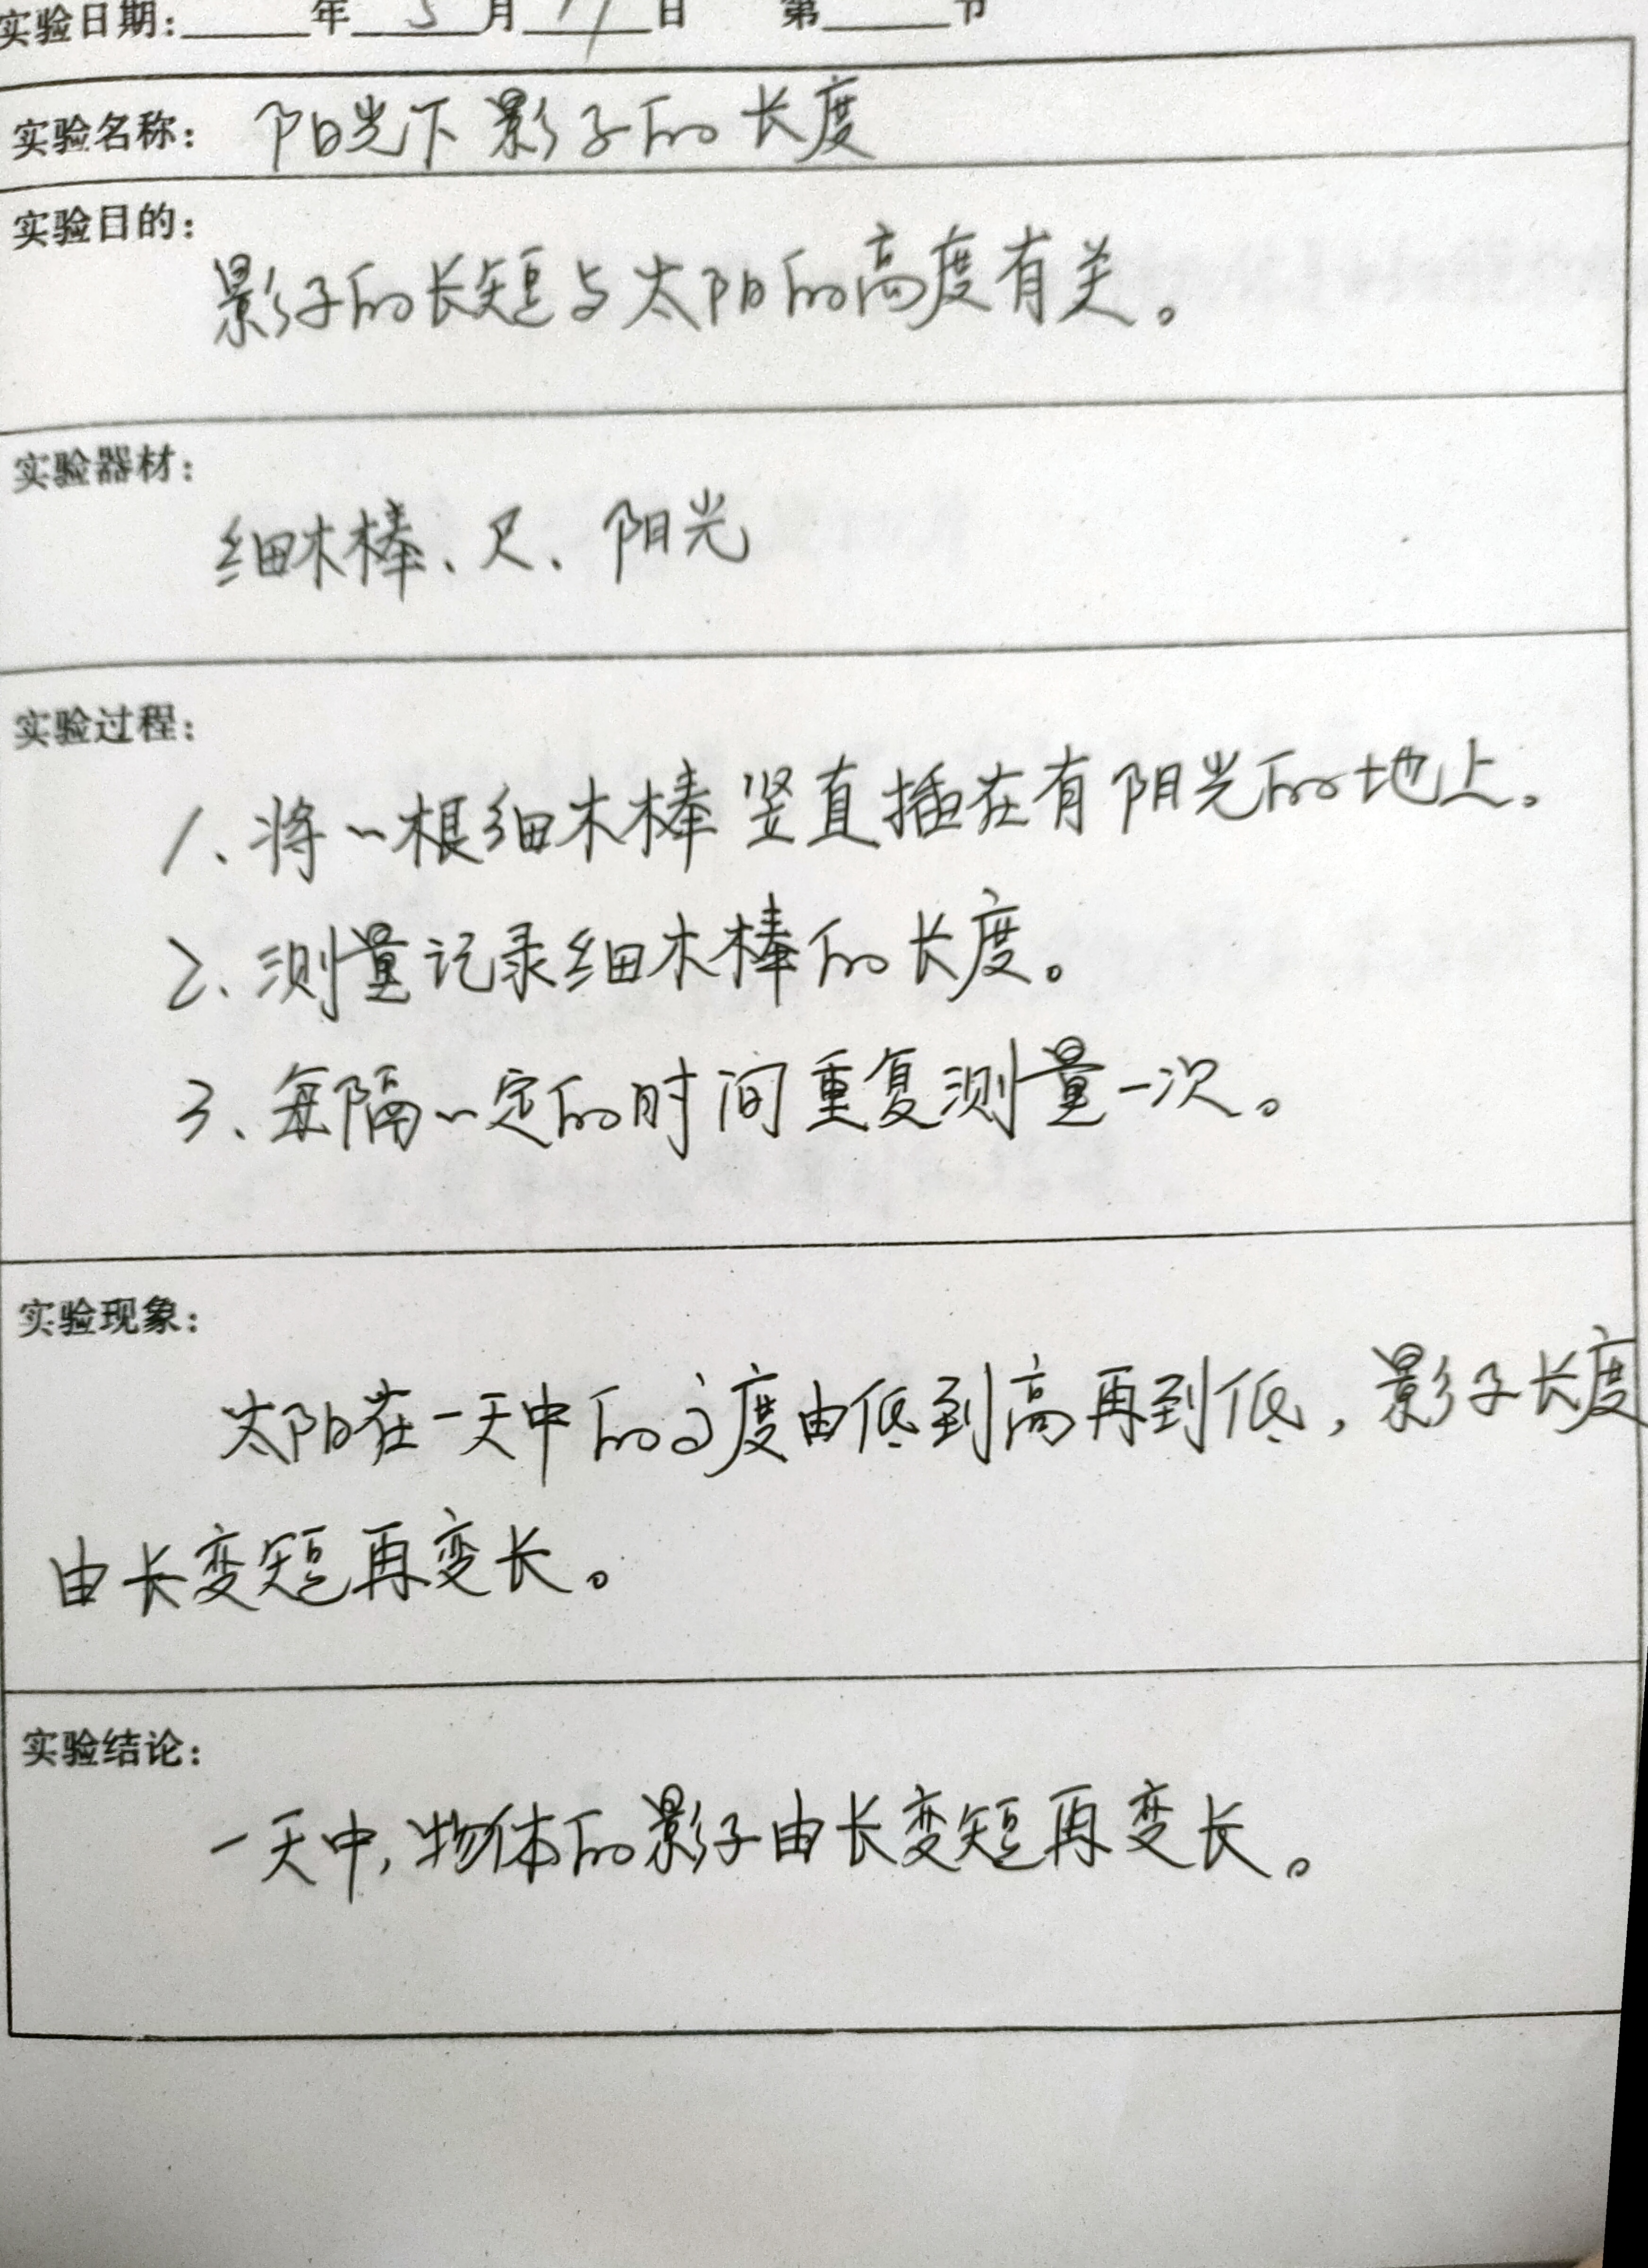 实验日期:____年 5 月____日 第____节
实验名称: 阳光下影子的长度
实验目的:
影子的长短与太阳的高度有关。
实验器材:
细木棒、尺、阳光
实验过程:
1、将一根细木棒竖直插在有阳光的地上。
2、测量记录细木棒的长度。
3、每隔一定的时间重复测量一次。
实验现象:
太阳在一天中的高度由低到高再到低,影子长度
由长变短再变长。
实验结论:
一天中,物体的影子由长变短再变长。